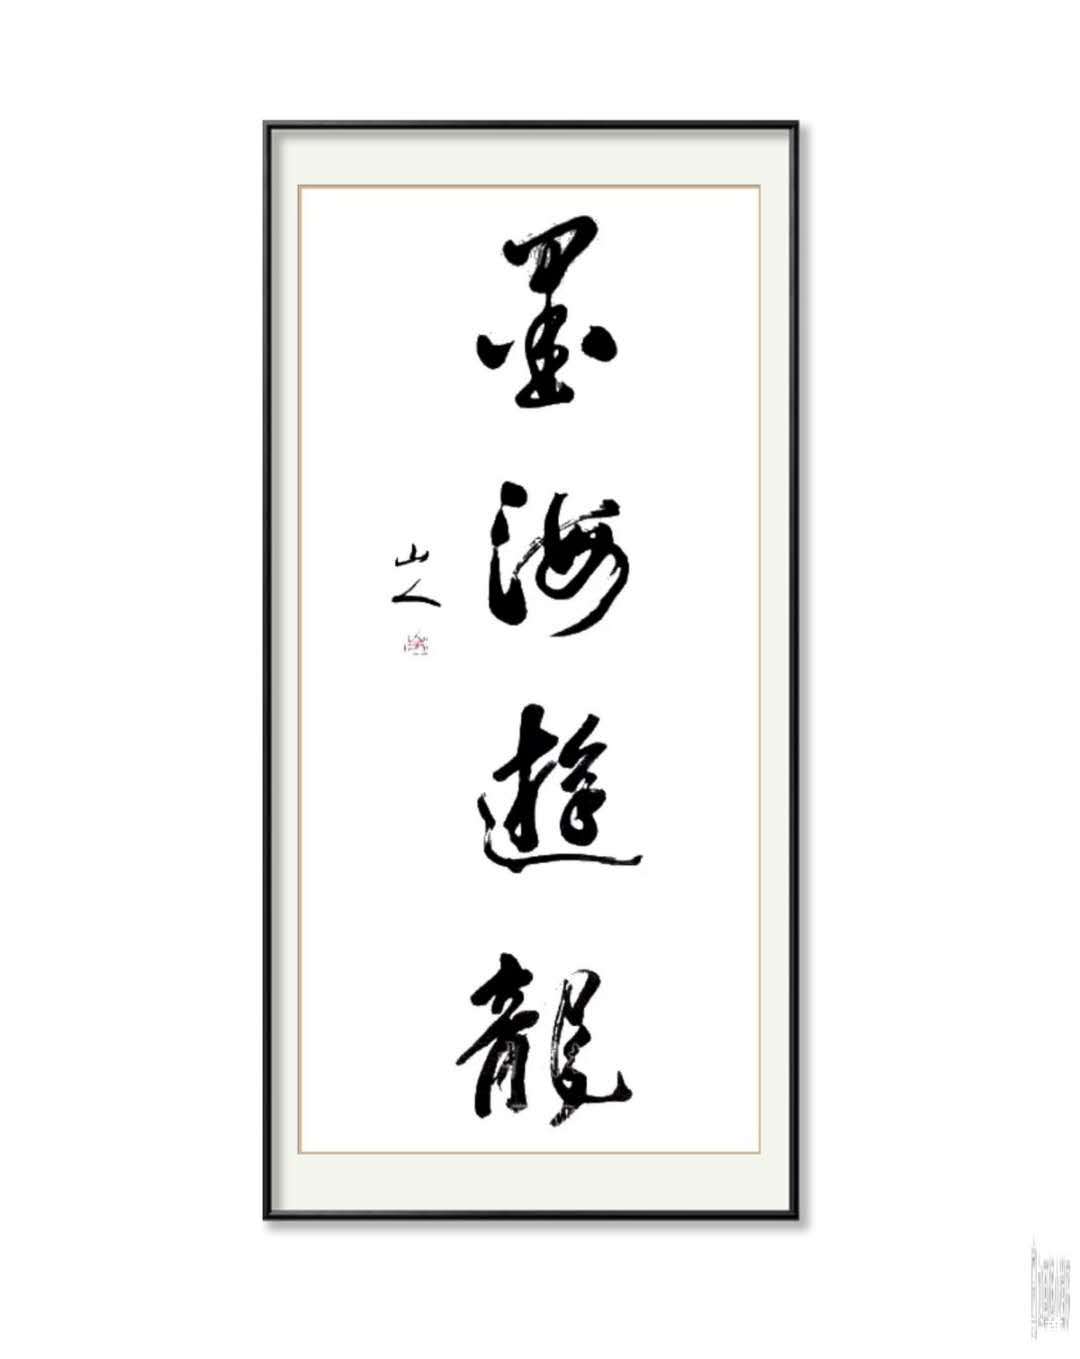 墨海遊龍
山人